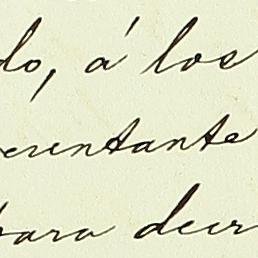 do, á los
erentante
para decir